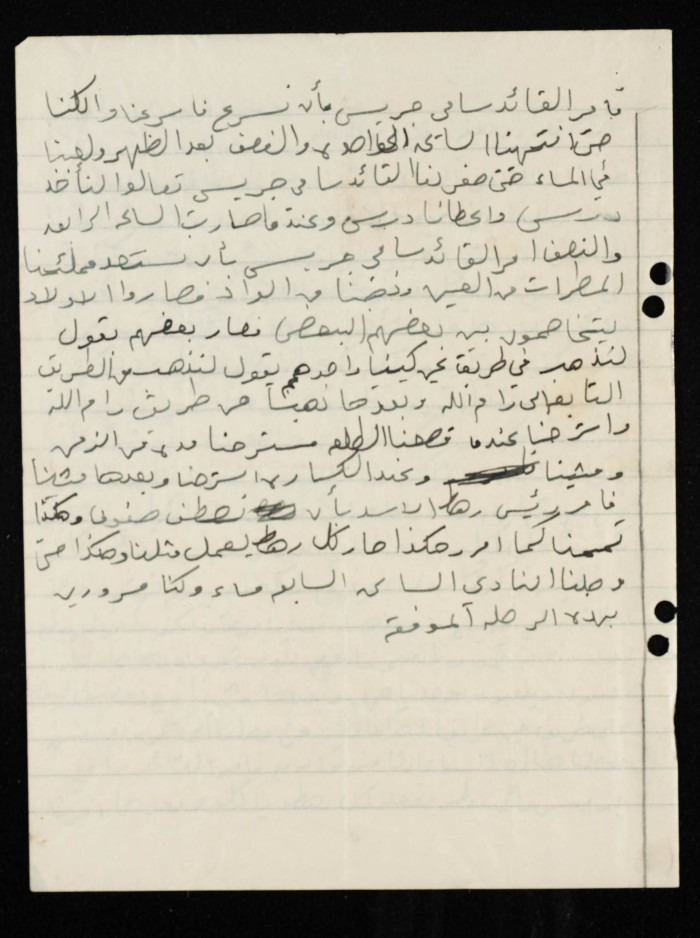 فأمر القائد سامي جريس بأن نسرع فاسرعنا والكنا
حتى انتهينا الساعة الواحدة والنصف بعد الظهر ولعبنا
في الماء حتى صفر لنا القائد سامي جريس تعالوا لنأخذ
درس واعطانا درس وعندما صارت الساعه الرابعه
والنصف امر القائد سامي جريس بأن نستعد فملئنا
المطرات من العين وخضنا من الواد فصاروا الاولاد
يتخاصمون بين بعضهم البعض فصار بعضهم يقول
لنذهب في طريق عين كينيا واحدهم يقول لنذهب من الطريق
التابعه الى رام الله وبعدها ذهبنا من طريق رام الله
واسترحنا عندما قطعنا الطلعه فسترحنا مدة من الزمن
ومشينا وعند الكساره استرحنا وبعدها مشينا
فامر رئيس رهط الاسد بأن نصطف صفوف وهكذا
تممنا كما امر وهكذا صار كل رهط يعمل مثلنا وهكذا حتى
وصلنا النادي الساعه السابعه مساء وكنا مسرورين
بهذه الرحله الموفقة